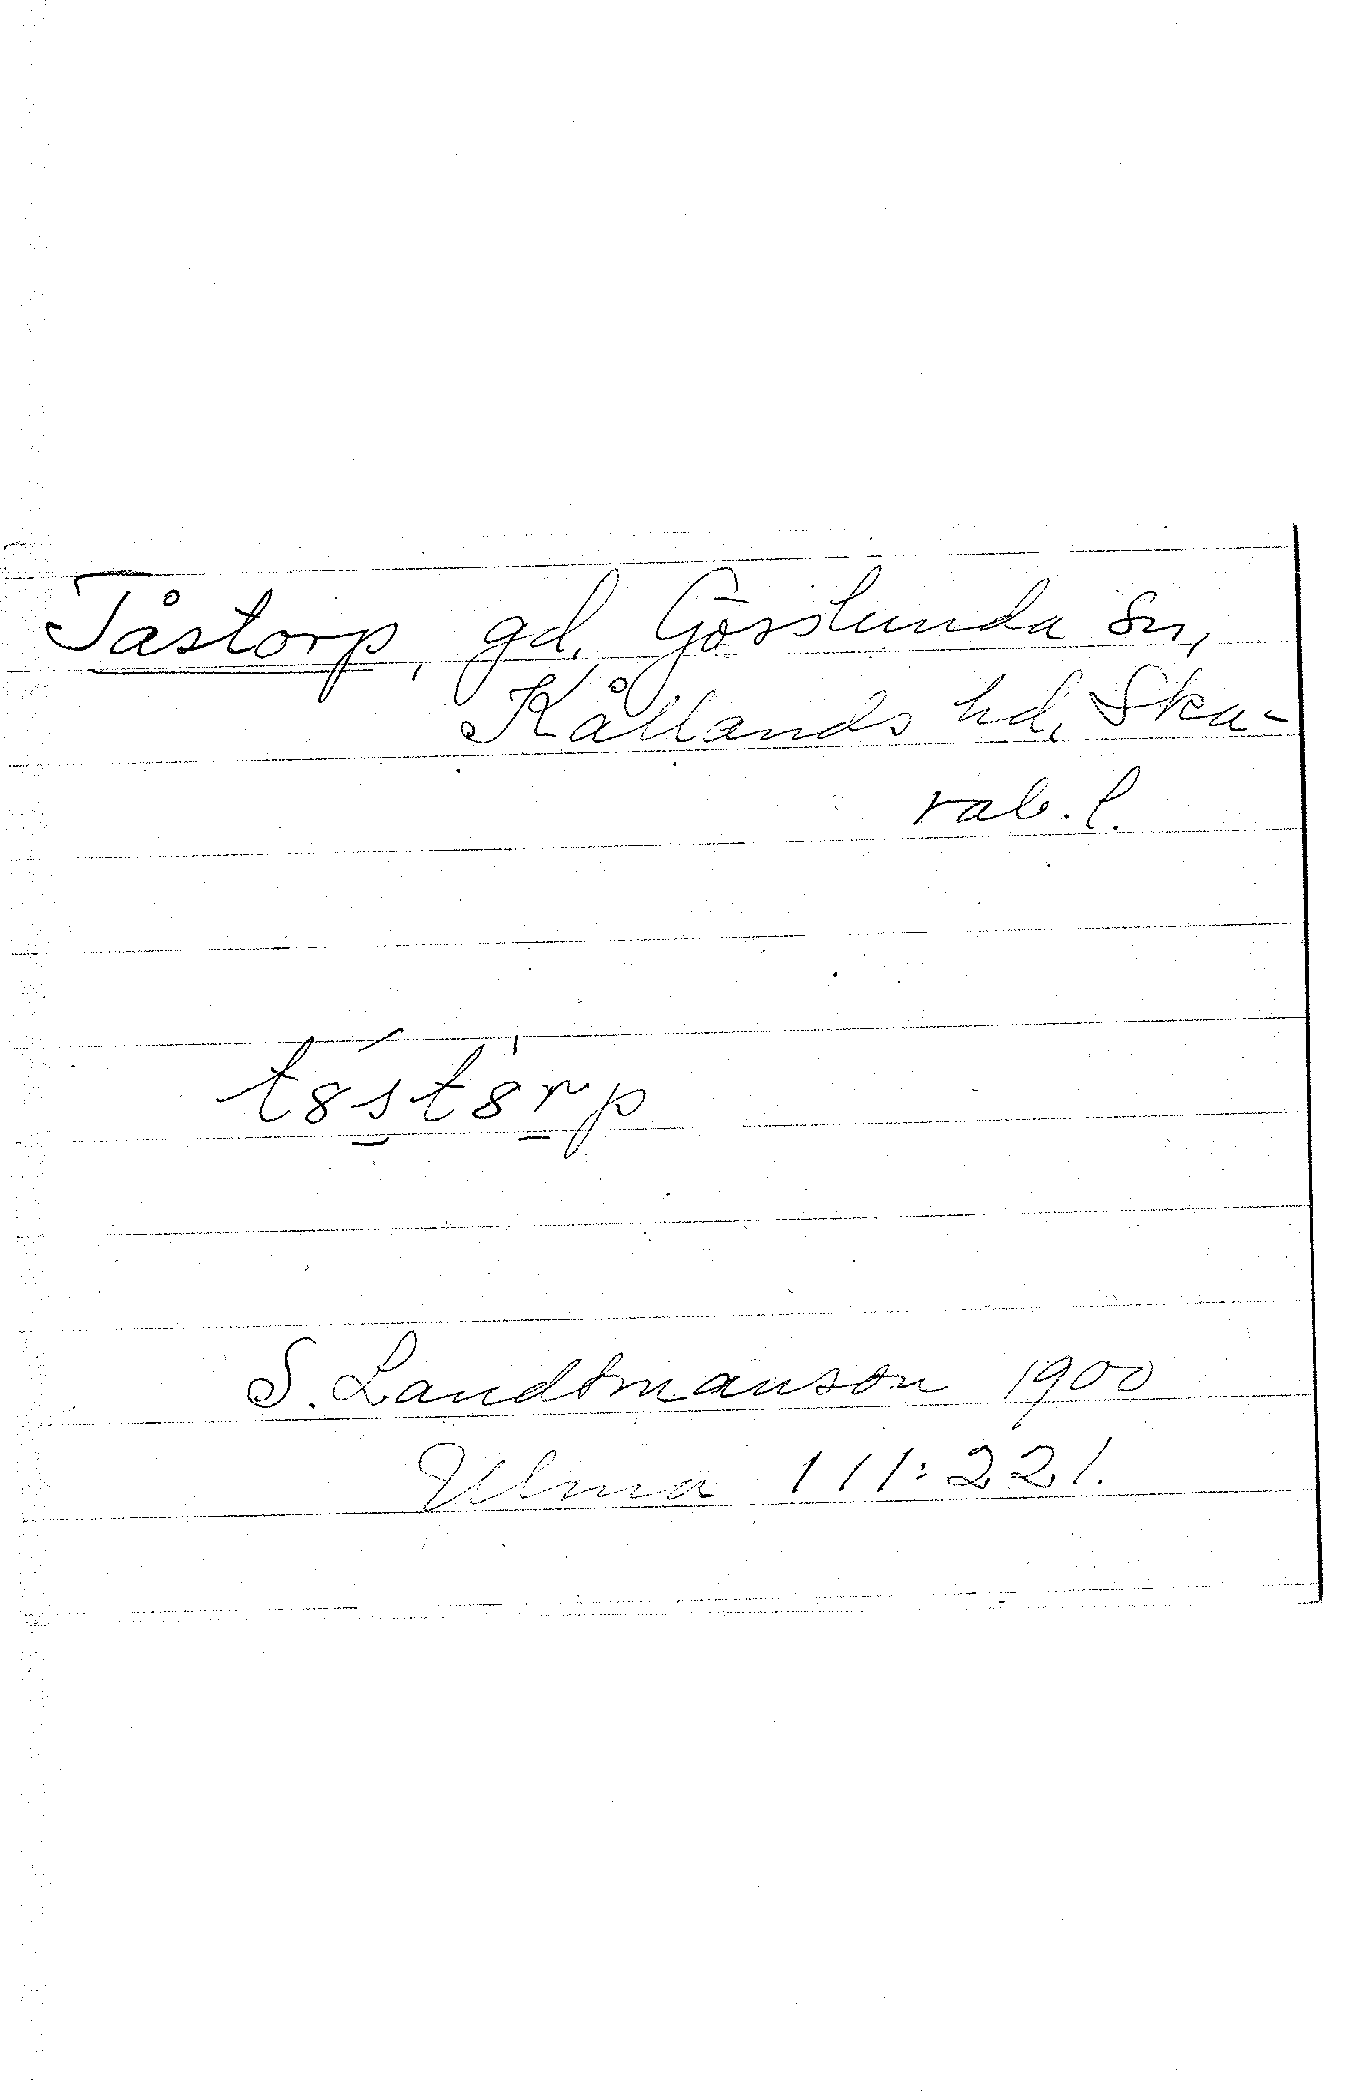 Tåstorp, gd, Gösslunda sn,
Kållands hd, Ska-
rab. l.
t8st8rp
S. Landtmanson 1900
Ulma 111:221.